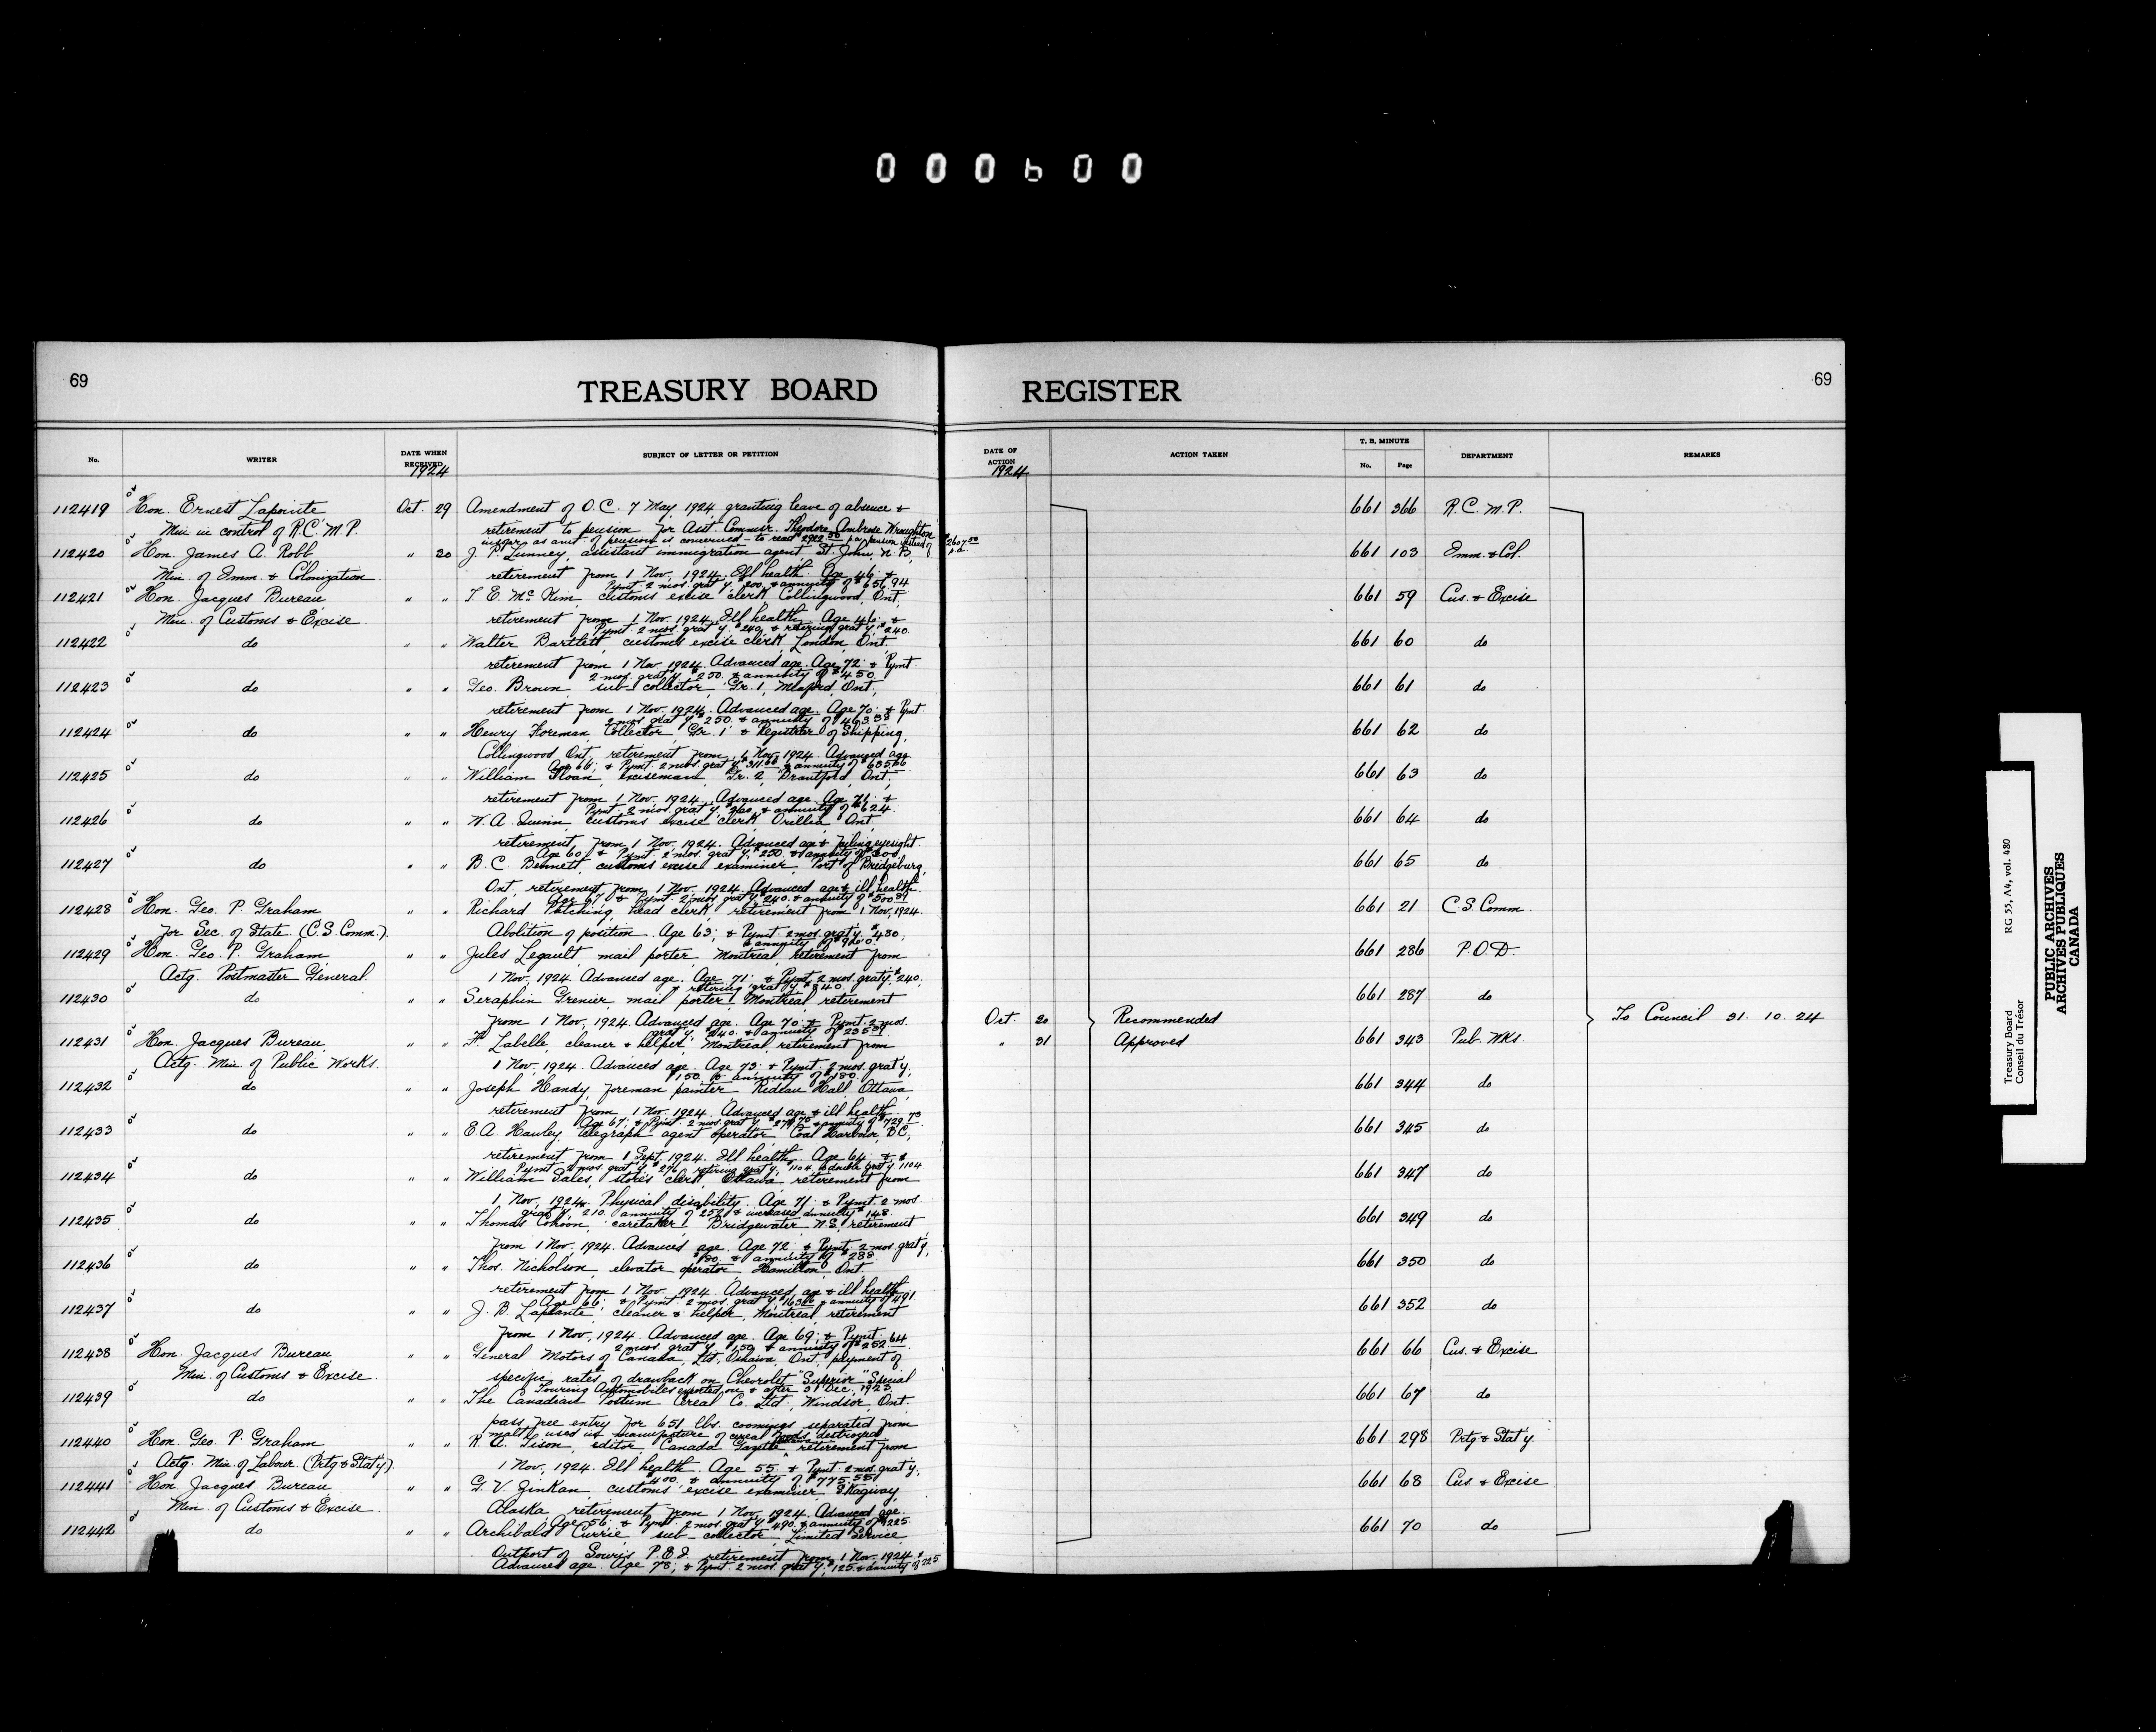 000600
69
TREASURY BOARD REGISTER
69
No. WRITER DATE WHEN RECEIVED 1924 SUBJECT OF LETTER OR PETITION DATE OF ACTION 1924 ACTION TAKEN T. B. MINUTE No. Page DEPARTMENT REMARKS
112419 Hon. Ernest Lapointe Oct. 29 Amendment of O.C. 7 May, 1924, granting leave of absence & 661 366 R.C.M.P.
Min. in control of R.C.M.P. retirement to pension for Asst. Commr. Theodore Ambrose Wroughton
insofar as amt. of pension is concerned - to read pension instead of $2607.00 p.a.
112420 Hon. James A. Robb " 30 J. P. Lunney, assistant immigration agent St. John, N.B., 661 103 Imm. & Col.
Min. of Imm. & Colonization. retirement from 1 Nov, 1924. Ill health. Age 46; &
Pymt. 2 mos. grat'y. $200. & annuity of $656.94
112421 Hon. Jacques Bureau " " T. E. McKim, customs excise clerk, Collingwood, Ont. 661 59 Cus. & Excise
Min. of Customs & Excise. retirement from 1 Nov. 1924. Ill health. Age 46; &
Pymt. 2 mos. grat'y. $240. & retiring grat'y. $240.
112422 do " " Walter Bartlett, customs excise clerk, London, Ont. 661 60 do
retirement from 1 Nov. 1924. Advanced age. Age 72; & Pymt.
2 mos. grat'y. $250. & annuity of $450.
112423 do " " Geo. Brown, sub-collector, Gr. 1, Meaford, Ont., 661 61 do
retirement from 1 Nov. 1924. Advanced age. Age 70; & Pymt.
2 mos. grat'y. $250. & annuity of
112424 do " " Henry Foreman, Collector, Gr. 1 & Registrar of Shipping, 661 62 do
Collingwood, Ont., retirement from 1 Nov. 1924. Advanced age
Age 66; & Pymt. 2 mos. grat'y. & annuity of
112425 do " " William Sloan, exciseman, Gr. 2, Brantford, Ont., 661 63 do
retirement from 1 Nov. 1924. Advanced age. Age 71; &
Pymt. 2 mos. grat'y. $260. & annuity of $624.
112426 do " " W. A. Quinn, customs excise clerk, Orillia, Ont. 661 64 do
retirement from 1 Nov. 1924. Advanced age & failing eyesight.
Age 60; & Pymt. 2 mos. grat'y. $250. & annuity of $300.
112427 do " " B. C. Bennett, customs excise examiner, Port of Bridgeburg, 661 65 do
Ont., retirement from 1 Nov. 1924. Advanced age & ill health.
Age 67 & Pymt. 2 mos. grat'y. $240. & annuity of
112428 Hon. Geo. P. Graham " " Richard Patching, head clerk, retirement from 1 Nov, 1924. 661 21 C.S. Comm.
for Sec. of State. (C.S. Comm.). Abolition of position. Age 63; & Pymt. 2 mos. grat'y. $480;
& annuity of
112429 Hon. Geo. P. Graham, " " Jules Legault, mail porter, Montreal, retirement from 661 286 P.O.D.
Actg. Postmaster General. 1 Nov, 1924. Advanced age. Age 71; & Pymt. 2 mos. grat'y. $240;
& retiring grat'y. $240.
112430 do " " Seraphin Grenier, mail porter, Montreal, retirement 661 287 do
from 1 Nov, 1924. Advanced age. Age 70; & Pymt. 2 mos. Oct. 30 Recommended To Council 31. 10. 24
grat'y. $240. & annuity of
112431 Hon. Jacques Bureau, " " F. Labelle, cleaner & helper, Montreal, retirement from " 31 Approved 661 343 Pub. Wks.
Actg. Min. of Public Works. 1 Nov. 1924. Advanced age. Age 73; & Pymt. 2 mos. grat'y,
$150. & annuity of $180.
112432 do " " Joseph Handy, foreman painter, Rideau Hall, Ottawa, 661 344 do
retirement from 1 Nov. 1924. Advanced age & ill health.
Age 67; & Pymt. 2 mos. grat'y. & annuity of $729.73
112433 do " " E. A. Hawley, telegraph agent operator, Coal Harbour, B.C., 661 345 do
retirement from 1 Sept. 1924. Ill health. Age 64; &
Pymt. 2 mos. grat'y. $276. retiring grat'y. $1104. & double grat'y 1104
112434 do " " William Sales, stores clerk, Ottawa, retirement from 661 347 do
1 Nov. 1924. Physical disability. Age 71; & Pymt. 2 mos.
grat'y. 210. annuity of 252 & increased annuity $148.
112435 do " " Thomas Cohoon, caretaker, Bridgewater, N.S., retirement 661 349 do
from 1 Nov. 1924. Advanced age. Age 72; & Pymt. 2 mos. grat'y,
$180. & annuity of $288.
112436 do " " Thos. Nicholson, elevator operator, Hamilton, Ont. 661 350 do
retirement from 1 Nov. 1924. Advanced age & ill health.
Age 66; & Pymt. 2 mos. grat'y. & annuity of $491
112437 do " " J. B. Laplante, cleaner & helper, Montreal, retirement 661 352 do
from 1 Nov, 1924. Advanced age. Age 69; & Pymt.
2 mos. grat'y. $150. & annuity of $252.64
112438 Hon. Jacques Bureau " " General Motors of Canada, Ltd, Oshawa, Ont., payment of 661 66 Cus. & Excise
Min. of Customs & Excise. specific rates of drawback on Chevrolet "Superior" Special
Touring Automobiles exported on & after 31 Dec., 1923.
112439 do " " The Canadian Postum Cereal Co. Ltd., Windsor, Ont. 661 67 do
pass free entry for 651 lbs. coomings separated from
malt used in manufacture of cereal foods destroyed
112440 Hon. Geo. P. Graham " " editor, Canada Gazette, retirement from 661 298 Prtg & Stat'y.
Actg. Min. of Labour. (Prtg & Stat'y). 1 Nov, 1924. Ill health. Age 55. & Pymt. 2 mos. grat'y,
$400. & annuity of $775.55
112441 Hon. Jacques Bureau " " G. V. Jinkan, customs excise examiner, Skagway 661 68 Cus. & Excise
Min. of Customs & Excise. Alaska, retirement from 1 Nov. 1924. Advanced age.
Age 56; & Pymt. 2 mos. grat'y. $490. & annuity of $1225.
112442 do " " Archibald Currie, sub-collector, Limited Service 661 70 do
Outport of Souris, P.E.I. retirement from 1 Nov. 1924.
Advanced age. Age 78; & Pymt. 2 mos. grat'y. $125. & annuity of $225
Treasury Board RG 55, A4, vol. 480
Conseil du Trésor
PUBLIC ARCHIVES
ARCHIVES PUBLIQUES
CANADA